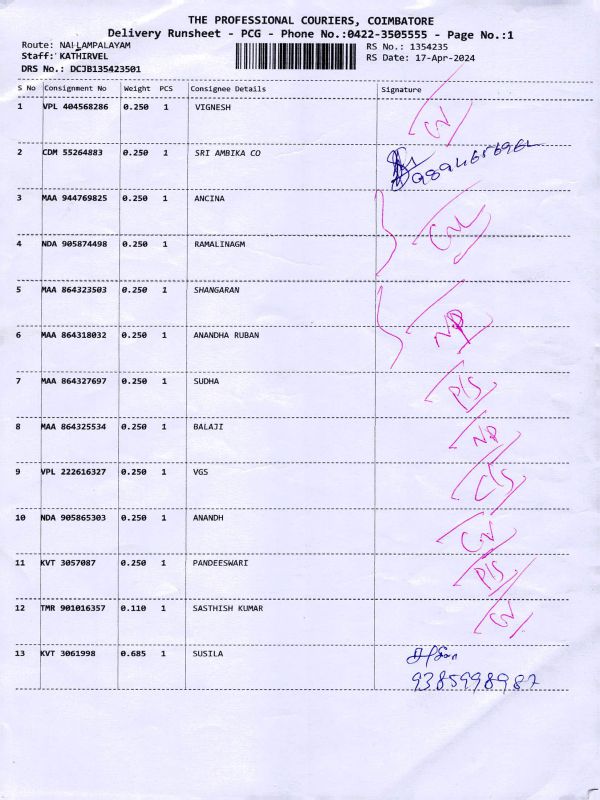 THE PROFESSIONAL COURIERS, COIMBATORE
Delivery Runsheet - PCG - Phone No.:0422-3505555 - Page No.:1
Route: NALLAMPALAYAM RS No.: 1354235
Staff: KATHIRVEL RS Date: 17-Apr-2024
DRS No.: DCJB135423501
S No Consignment No Weight PCS Consignee Details Signature
1 VPL 404568286 0.250 1 VIGNESH
2 CDM 55264883 0.250 1 SRI AMBIKA CO
3 MAA 944769825 0.250 1 ANCINA
4 NDA 905874498 0.250 1 RAMALINAGM
5 MAA 864323503 0.250 1 SHANGARAN
6 MAA 864318032 0.250 1 ANANDHA RUBAN ND
7 MAA 864327697 0.250 1 SUDHA P/S
8 MAA 864325534 0.250 1 BALAJI ND
9 VPL 222616327 0.250 1 VGS C/S
10 NDA 905865303 0.250 1 ANANDH
11 KVT 3057087 0.250 1 PANDEESWARI P/S
12 TMR 901016357 0.110 1 SASTHISH KUMAR
13 KVT 3061998 0.685 1 SUSILA
9385998987